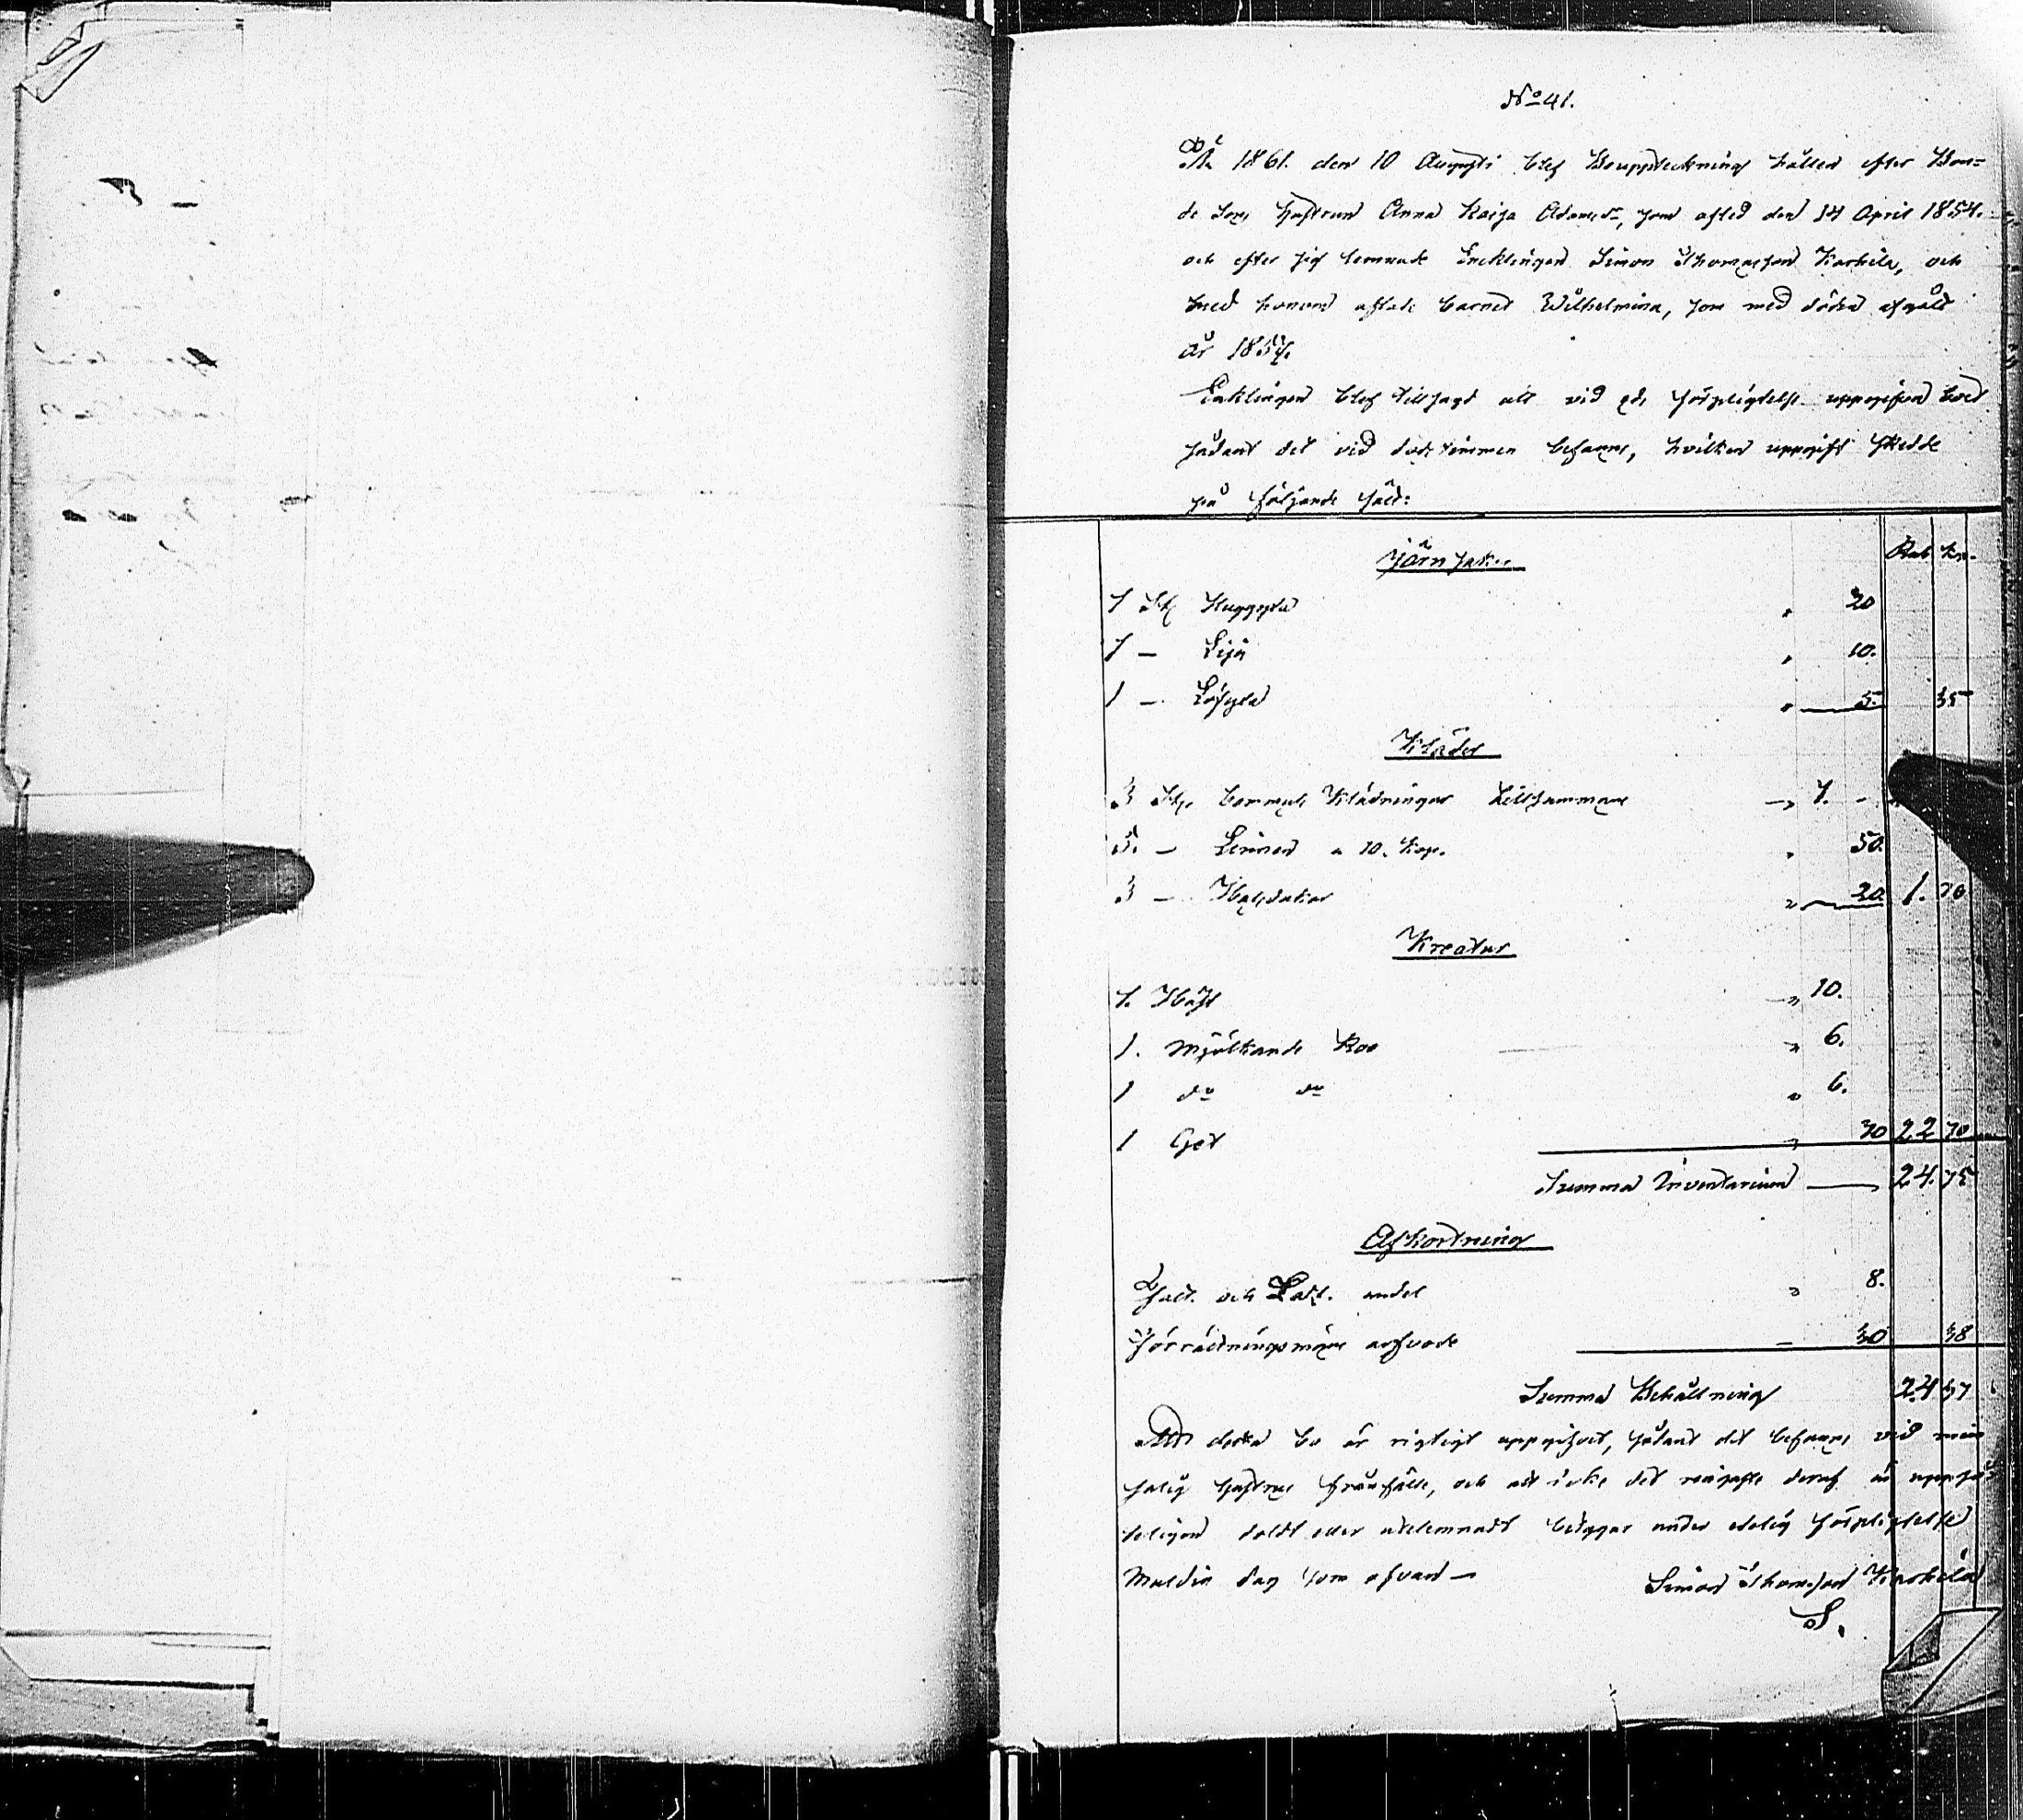 No 41.
År 1861. den 10 Augusti blef Bouppteckning hållen efter Bon=
de sons hustrun Anna Kaisa Adamsdr, som afled den 14 April 1854.
och efter sig lemnade Encklingen Simon Thomasson Karhila, och
med honom aflade barnet Wilhelmina, som med döden afgått
år 1854.
Enklingen blef tillsagt att vid eds förpligtelse uppgifva boet
sådant det vid dödstimmen befanns, hvilken uppgift skedde
på följande sätt:
Järnsaker Rub Kop.
1 St Huggyxa " 20
1 — Lija " 10.
1 — Löfyxa " 5. 35
Kläder
3 St. bomuls Klädningar tillsammans " 1. -
5. — Linnen a 10. Kop. " 50.
3 — Halsdukar " 20 1. 70
Kreatur
1. Häst " 10.
1. Mjölkande Koo " 6.
1 do do " 6.
1 Get " 70 22 70
Summa Inventarium — 24. 75
Afkortning
Fatt. och Laz. andel " 8.
Förrättningsmäns arfvode — 30 38
Summa Behållning 24 37
Att detta bo är rigtigt uppgifvet, sådant det befanns vid min
salig hustrus frånfälle, och att icke det ringaste deraf är uppsåt
teligen doldt eller utelemnadt betygar under edelig förpligtelse
Muldia dag som ofvan — Simon Thomasson Karhila
S.